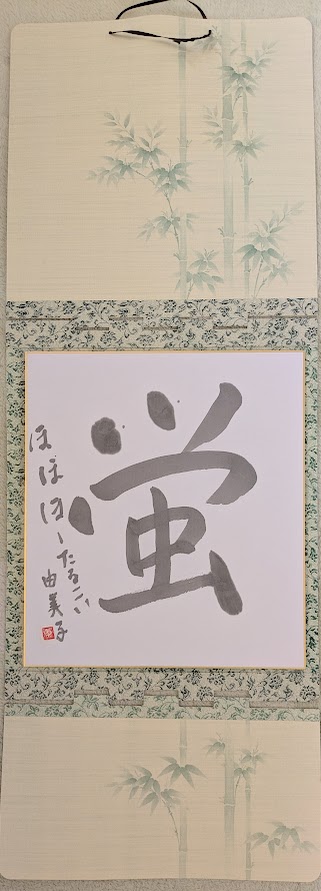 蛍
ほ ほ ほーたるこい
由美子